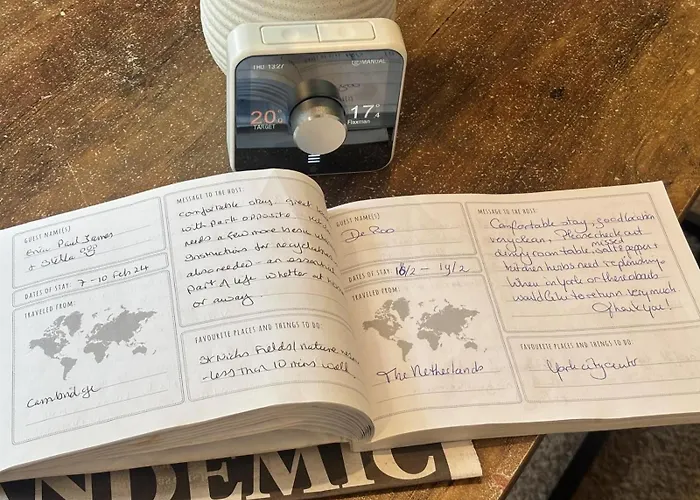 THU 13:27
MANUAL
20°
TARGET
17°4
Flaxman
GUEST NAME(S)
Paul James
+ Stella
DATES OF STAY: 7-10 Feb 24
TRAVELLED FROM:
Cambridge
MESSAGE TO THE HOST:
Comfortable stay, great
with park opposite.
needs a few more
Instructions for recycling
also needed - an essential
part of life whether at
or away
FAVOURITE PLACES AND THINGS TO DO:
St Nicks Fields/nature
-less than 10 mins walk.
GUEST NAME(S)
De Roo
DATES OF STAY 16/2 - 19/2
TRAVELLED FROM:
The Netherlands
MESSAGE TO THE HOST:
Comfortable stay, good location
very clean, Please check out
missed
dining room table, salt & pepper &
kitchen herbs need replenishing.
When in York or thereabouts
would like to return very much
Thank you!
FAVOURITE PLACES AND THINGS TO DO:
York city centr
NDEMIC